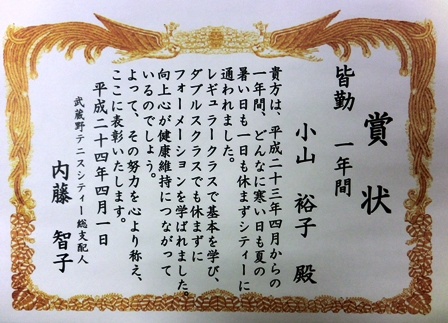 賞状
皆勤 一年間
小山 裕子 殿
貴方は、平成二十三年四月からの
一年間、どんなに寒い日も夏の
暑い日も一日も休まずシティーに
通われました。
レギュラークラスで基本を学び、
ダブルスクラスでも休まずに
フォーメーションを学ばれました。
向上心が健康維持につながって
いるのでしょう。
よって、その努力を心より称え、
ここに表彰いたします。
平成二十四年四月一日
武蔵野テニスシティー総支配人
内藤 智子